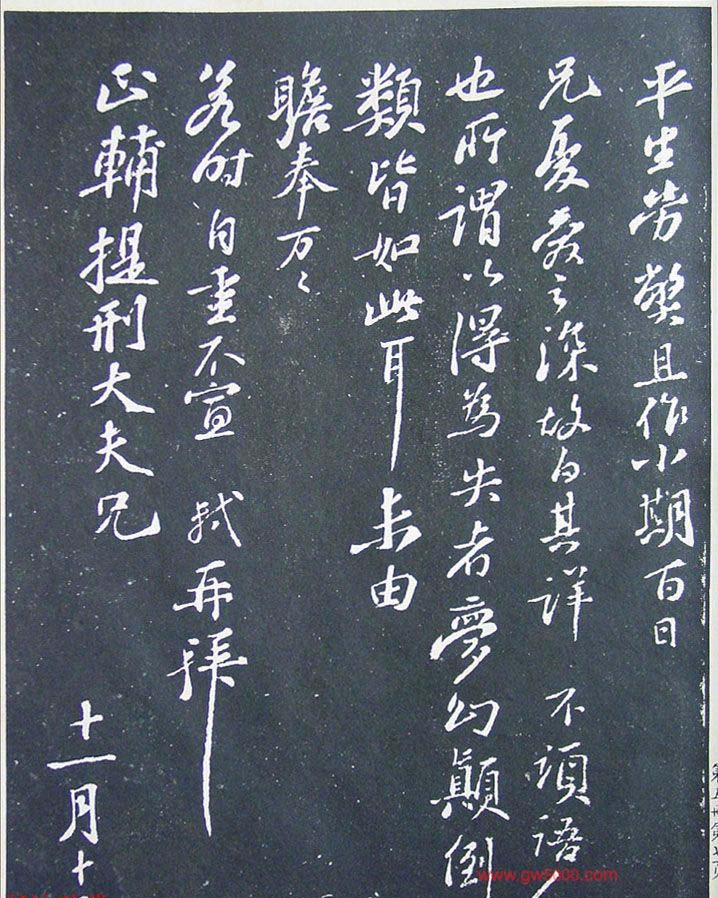 平生勞弊且作小期百日
兄憂愛之深故白其詳 不須語
也所謂以得為失者夢幻顛倒
類皆如此耳 未由
瞻奉万〻
若时自重不宣 軾再拜
正輔提刑大夫兄
十一月十
www.gw5000.com